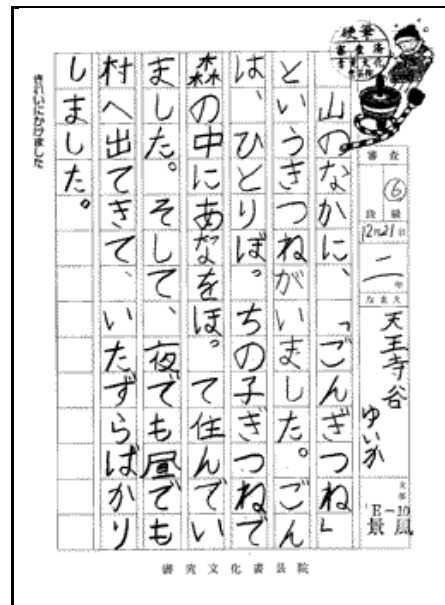 硬筆
審査済
審査
⑥
段級
12月21日
二年
なまえ
天王寺谷
ゆいか
支部
E-10
景風
山のなかに、「ごんぎつね」
というきつねがいました。ごん
は、ひとりぼっちの子ぎつねで
森の中にあなをほって住んでい
ました。そして、夜でも昼でも
村へ出てきて、いたずらばかり
しました。
きれいにかけました
書究文化書芸院